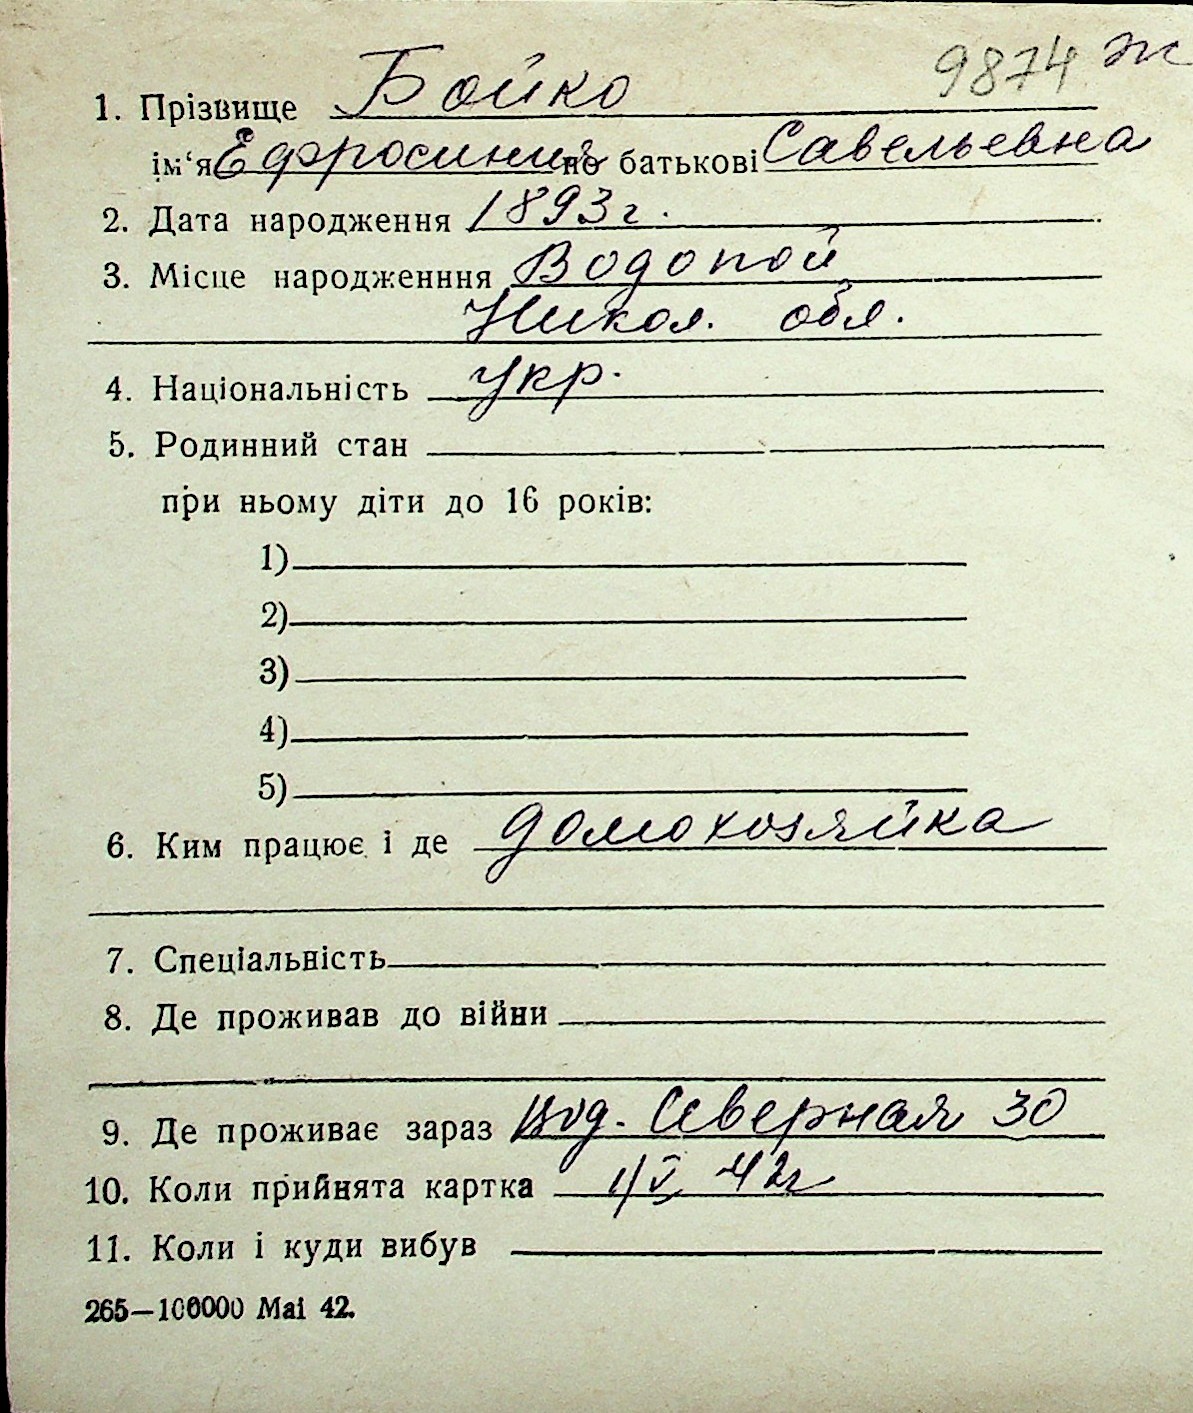 9874 ж
1. Прізвище Бойко
ім‘я Ефросиния по батькові Савельевна
2. Дата народження 1893 г.
3. Місце народженння Водопой
Никол. обл.
4. Національність укр.
5. Родинний стан
при ньому діти до 16 років:
1)
2)
3)
4)
5)
6. Ким працює і де домохозяйка
7. Спеціальність
8. Де проживав до війни
9. Де проживає зараз Вод. Северная 30
10. Коли прийнята картка 1/V 42г
11. Коли і куди вибув
265—100000 Mai 42.